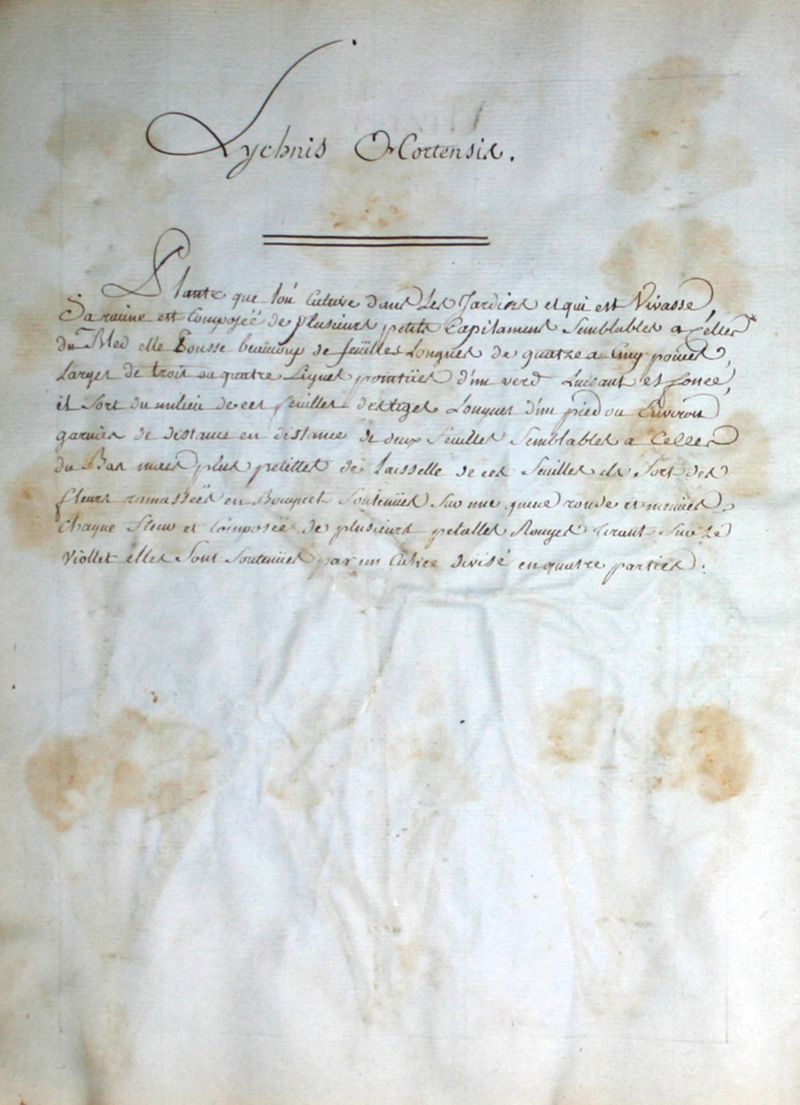 Lychnis Hortensis.
Plante que lon Cultive Dans Les Jardins et qui est Vivasse
Sa racine est Composéé de plusieurs petits Capilament Semblables a Celles
du Bled elle Pousse beaucoup de feuilles Longues de quatre a Cinq pouces,
Larges de trois ou quatre Lignes pointües d'un verd Luisant et foncé,
il Sort du milieu de ces feuilles des tiges Longues d'un pied ou Environ
garnies de distance en distance de deux feuilles Semblables a Celles
du Bas mais plus petittes de Laisselle de ces feuilles ils Sort des
fleurs ramasséés en Bouquet Soutenües Sur une queue ronde et menües,
Chaque fleur et Composéé de plusieurs petalles Rouges tirant Sur Le
Viollet elles Sont Soutenües par un Calice divisé en quatre parties.